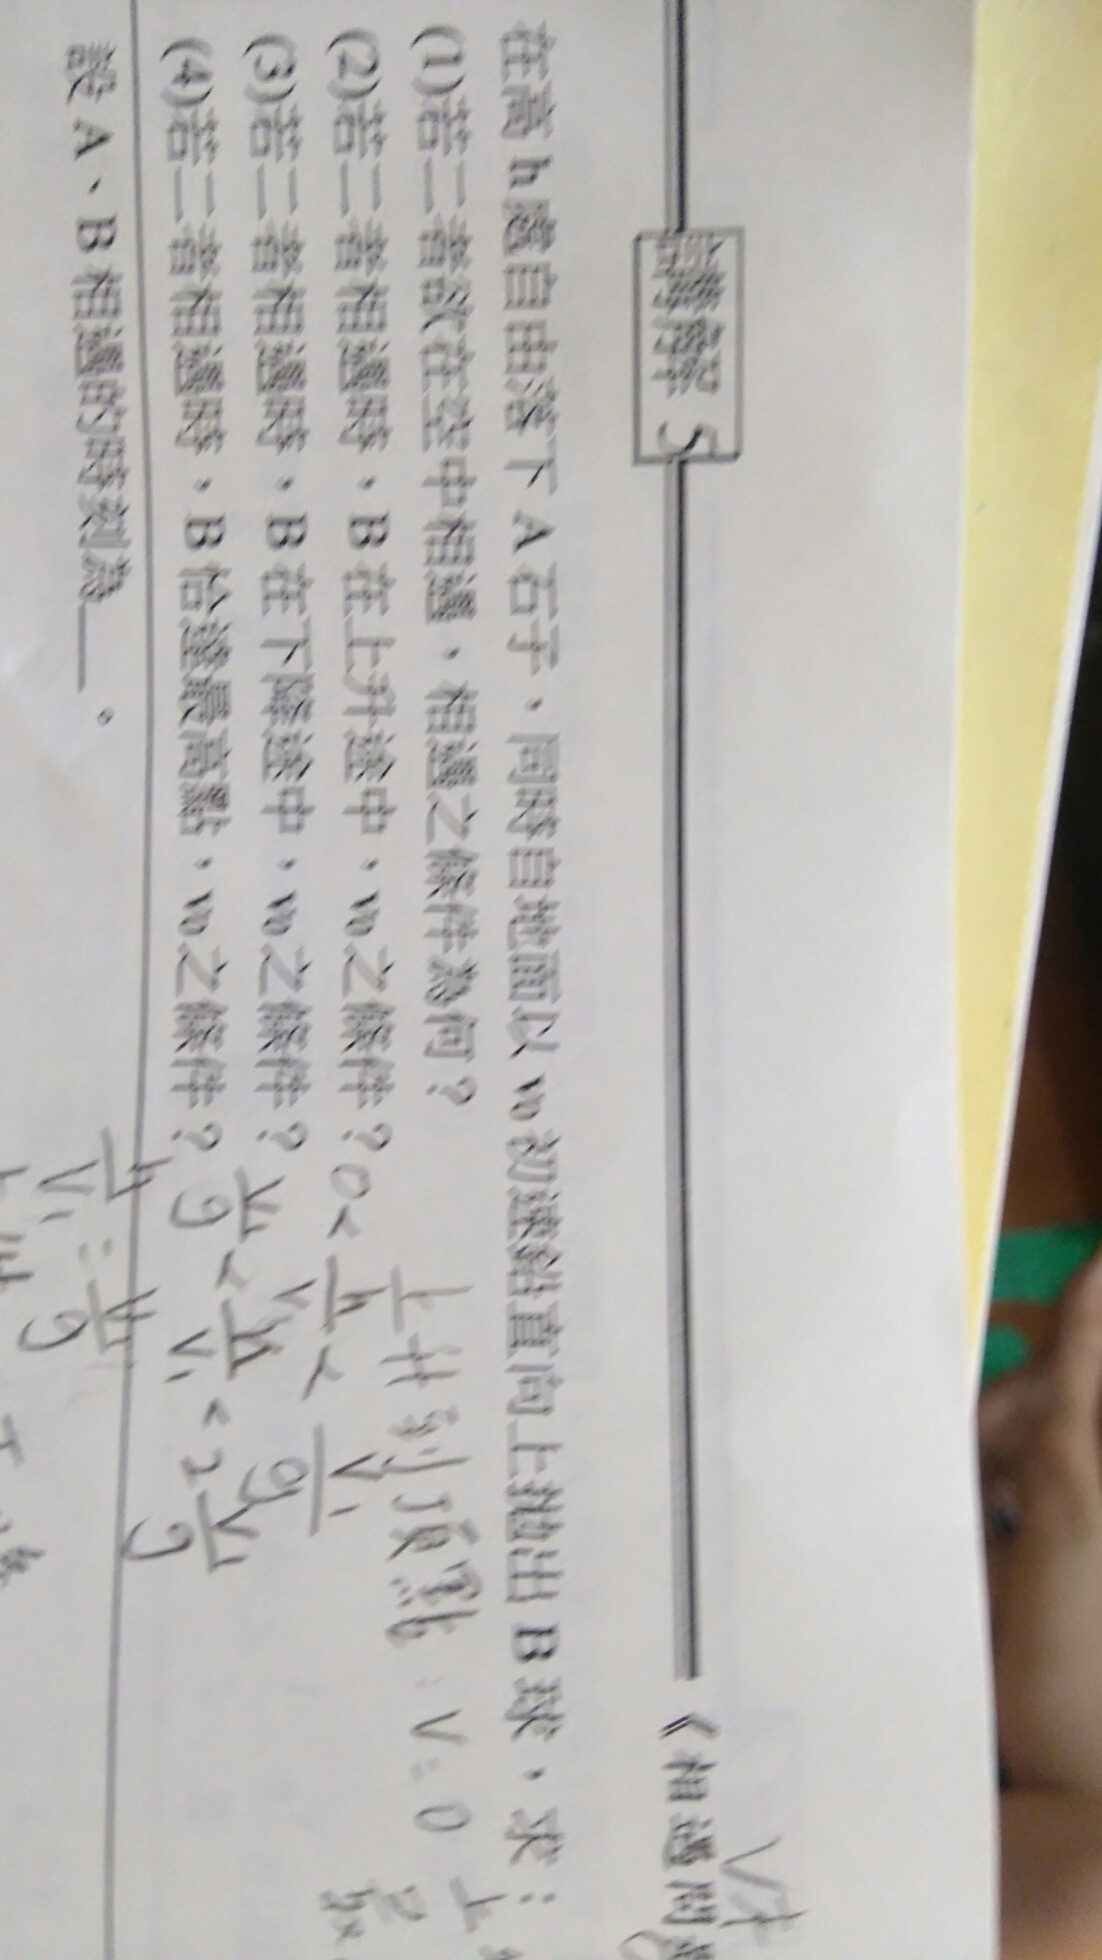 《相遇問
講解 5
在高 h 處自由落下 A 石子,同時自地面以 v₀ 初速鉛直向上拋出 B 球,求:
(1)若二者欲在空中相遇,相遇之條件為何?
上升到頂點: V=0
(2)若二者相遇時,B 在上升途中,v₀ 之條件? 0<h/V₁<V₁/g
(3)若二者相遇時,B 在下降途中,v₀ 之條件? V₁/g<h/V₁<2V₁/g
(4)若二者相遇時,B 恰達最高點,v₀ 之條件?
h/V₁=V₁/g
設 A、B 相遇的時刻為___。